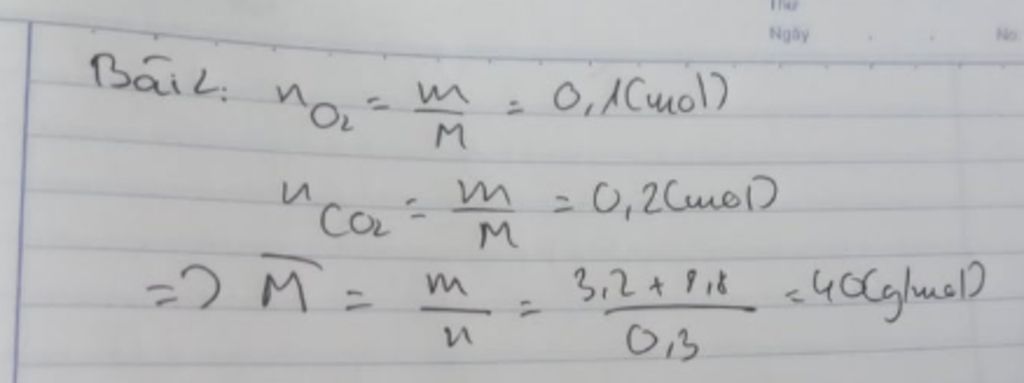 Thứ
Ngày . . No.
Bài 2: n O₂ = m/M = 0,1(mol)
n CO₂ = m/M = 0,2(mol)
=> M̅ = m/n = (3,2 + 8,8)/0,3 = 40(g/mol)